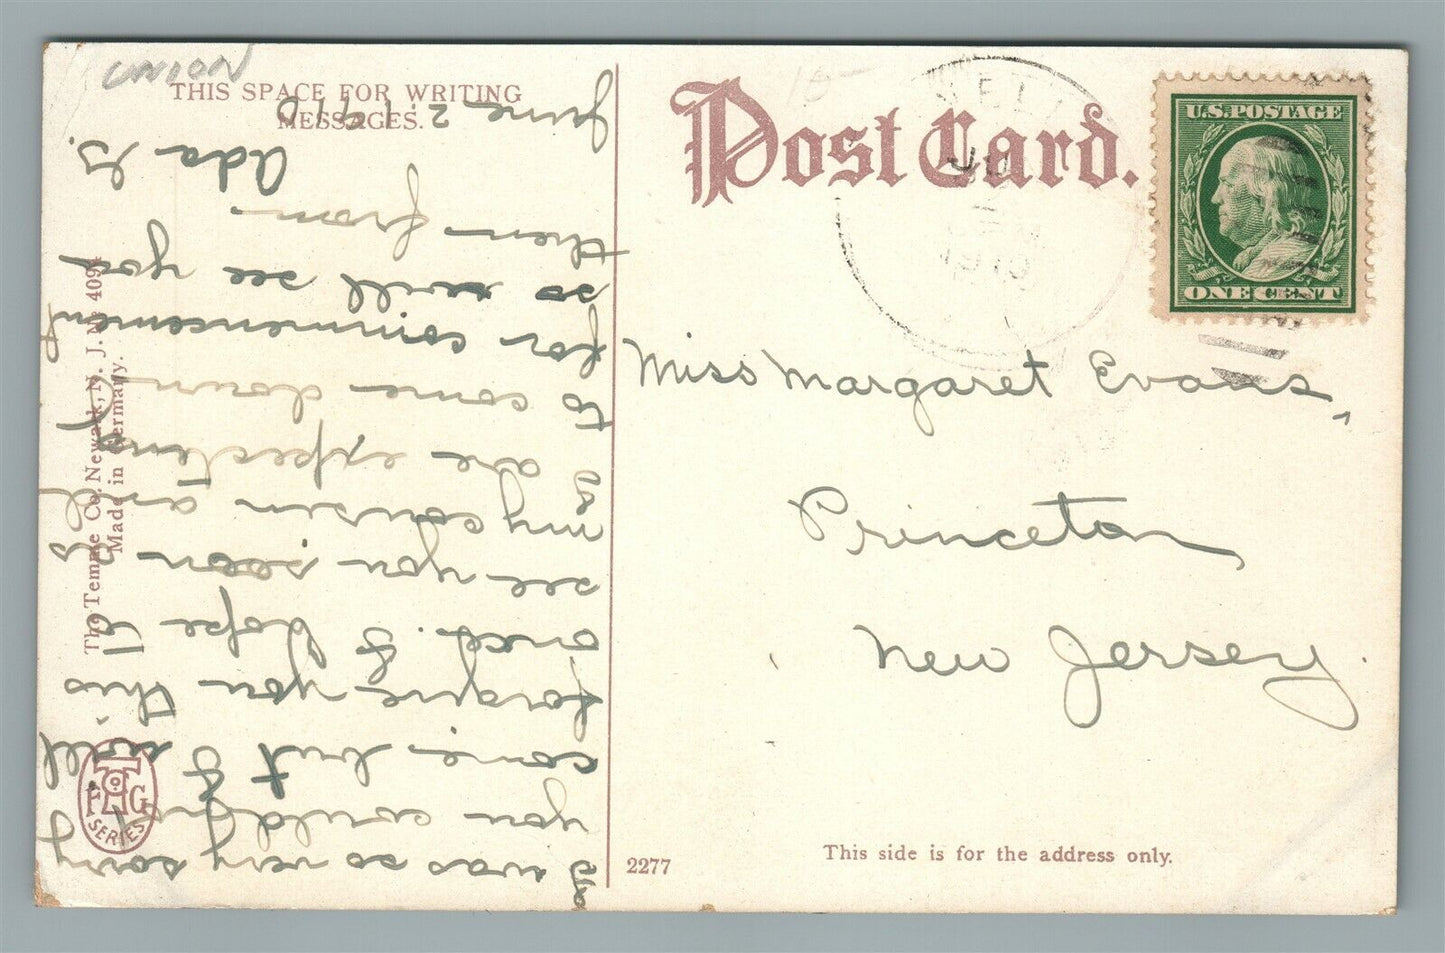 UNION
THIS SPACE FOR WRITING
MESSAGES.
Post Card.
U.S. POSTAGE
ONE CENT
1910
Miss Margaret Evans,
Princeton
New Jersey.
This side is for the address only.
2277
The Temme Co. Newark, N. J. No 4094
Made in Germany.
F G
SERIES
I was so very sorry
you couldn't
come, but I will
forgive you this
once. I hope to
see you soon as
my cousin and
I are expecting
to come down
for commencement
so will see you
then from
Ada B.
June 2 1910